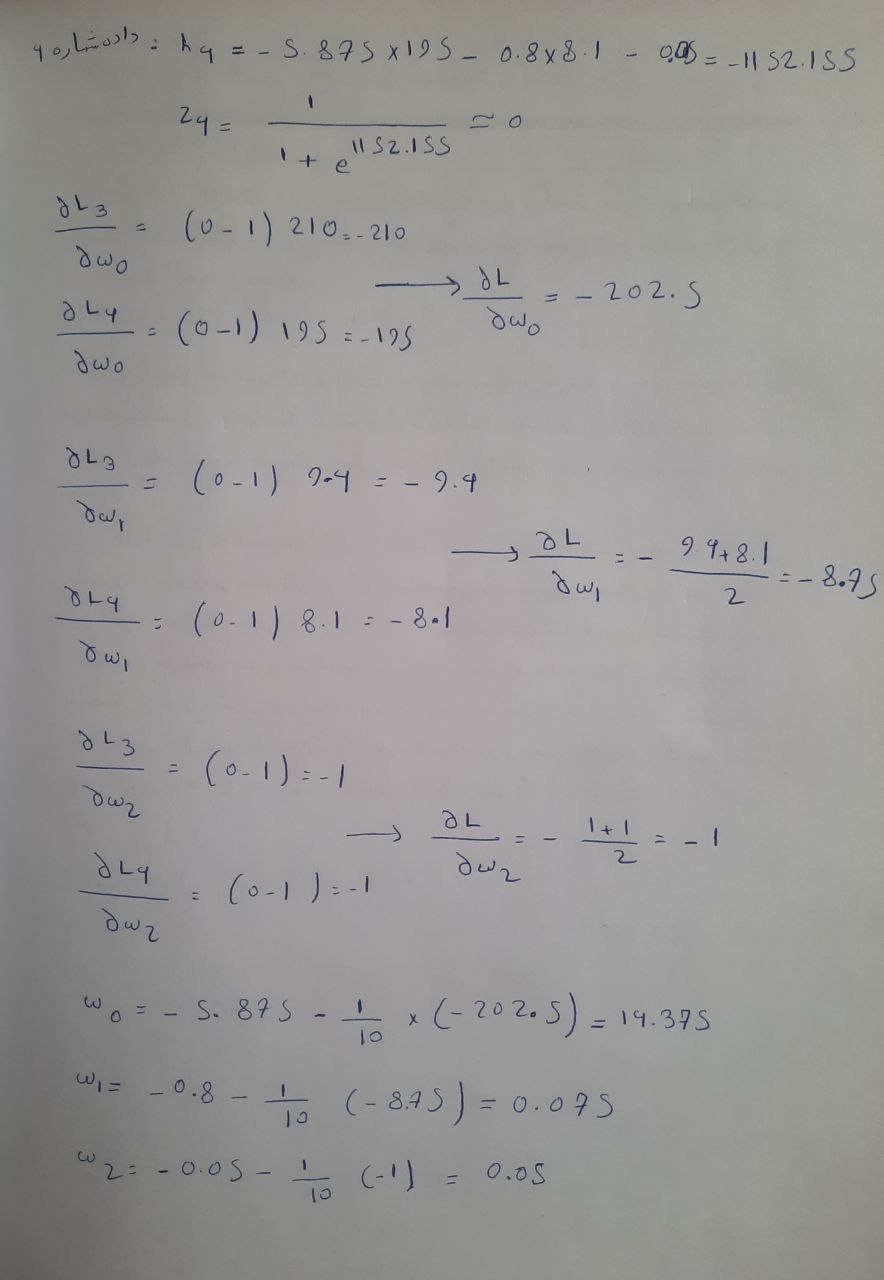 داده شماره 4 : h4 = - 5.875 × 195 - 0.8 × 8.1 - 0.05 = -1152.155
z4 = 1 / (1 + e^1152.155) ≃ 0
∂L3/∂w0 = (0 - 1) 210 = -210
→ ∂L/∂w0 = - 202.5
∂L4/∂w0 = (0 - 1) 195 = -195
∂L3/∂w1 = (0 - 1) 9.4 = - 9.4
→ ∂L/∂w1 = - (9.4 + 8.1)/2 = - 8.75
∂L4/∂w1 = (0 - 1) 8.1 = - 8.1
∂L3/∂w2 = (0 - 1) = -1
→ ∂L/∂w2 = - (1+1)/2 = - 1
∂L4/∂w2 = (0 - 1) = -1
w0 = - 5.875 - 1/10 × (- 202.5) = 14.375
w1 = - 0.8 - 1/10 (- 8.75) = 0.075
w2 = - 0.05 - 1/10 (-1) = 0.05